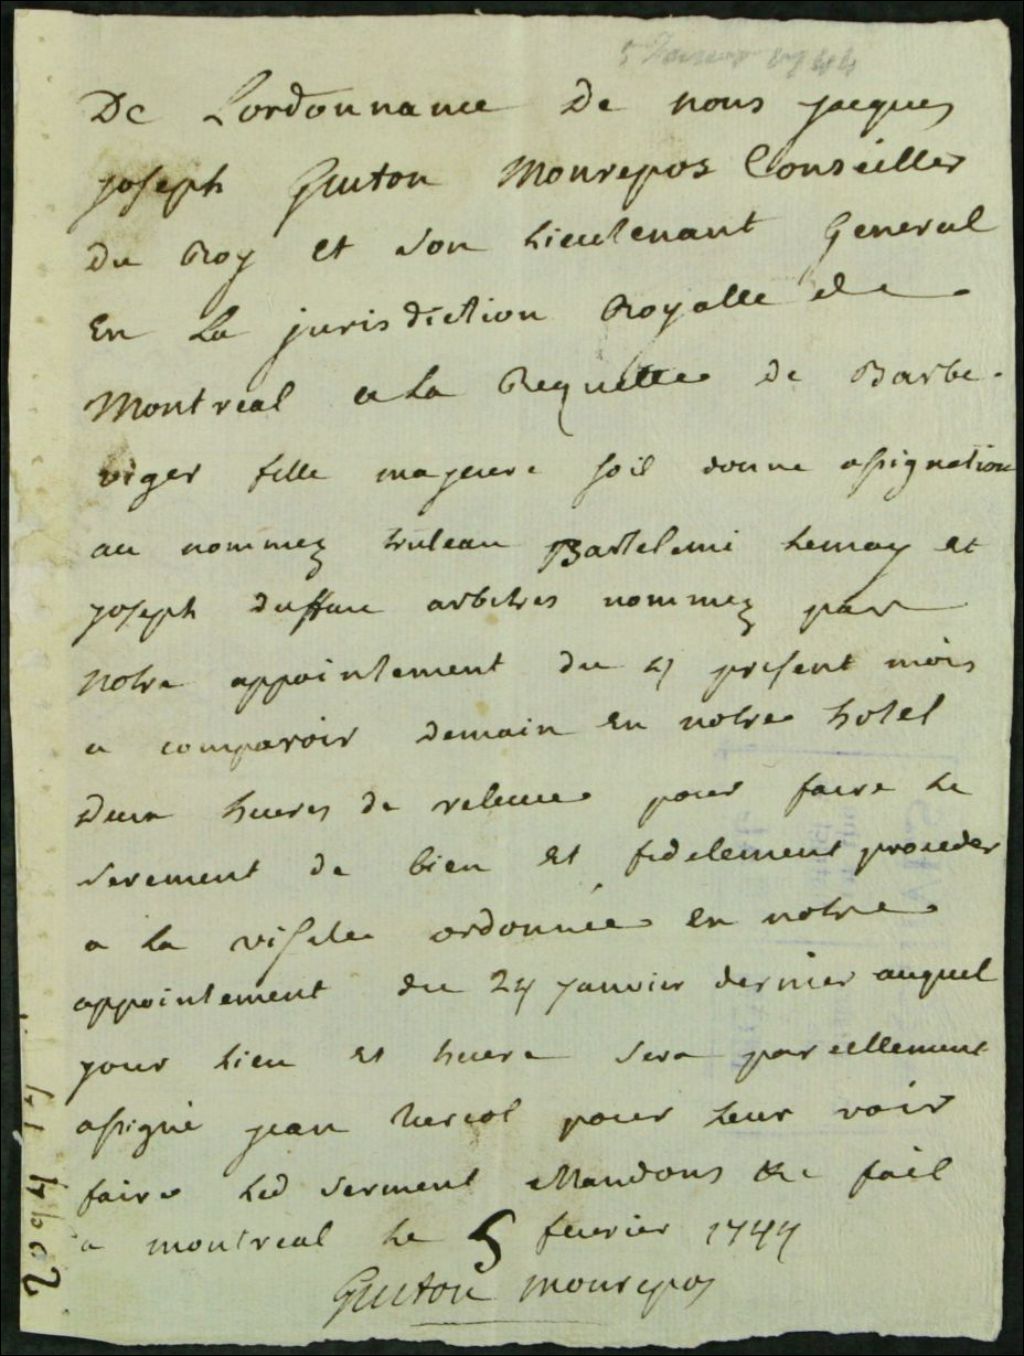 De Lordonnance De nous jacques
joseph Guiton Monrepos Conseiller
du Roy et son Lieutenant General
En La jurisdiction Royalle de
Montreal a La Requette de Barbe
viger fille majeure soit donne assignation
au nommez truteau Bartelemi Lemay et
joseph duffau arbitres nommez par
notre appointement du 4 present mois
a comparoir demain en notre hotel
deux heures de relevee pour faire Le
serement de bien et fidelement proceder
a La visite ordonnée en notre
appointement du 24 janvier dernier auquel
jour Lieu et heure sera pareillement
assigné jean pour Leur voir
faire Led serment Mandons &c fait
a montreal Le 5 fevrier 1744
Guiton monrepos